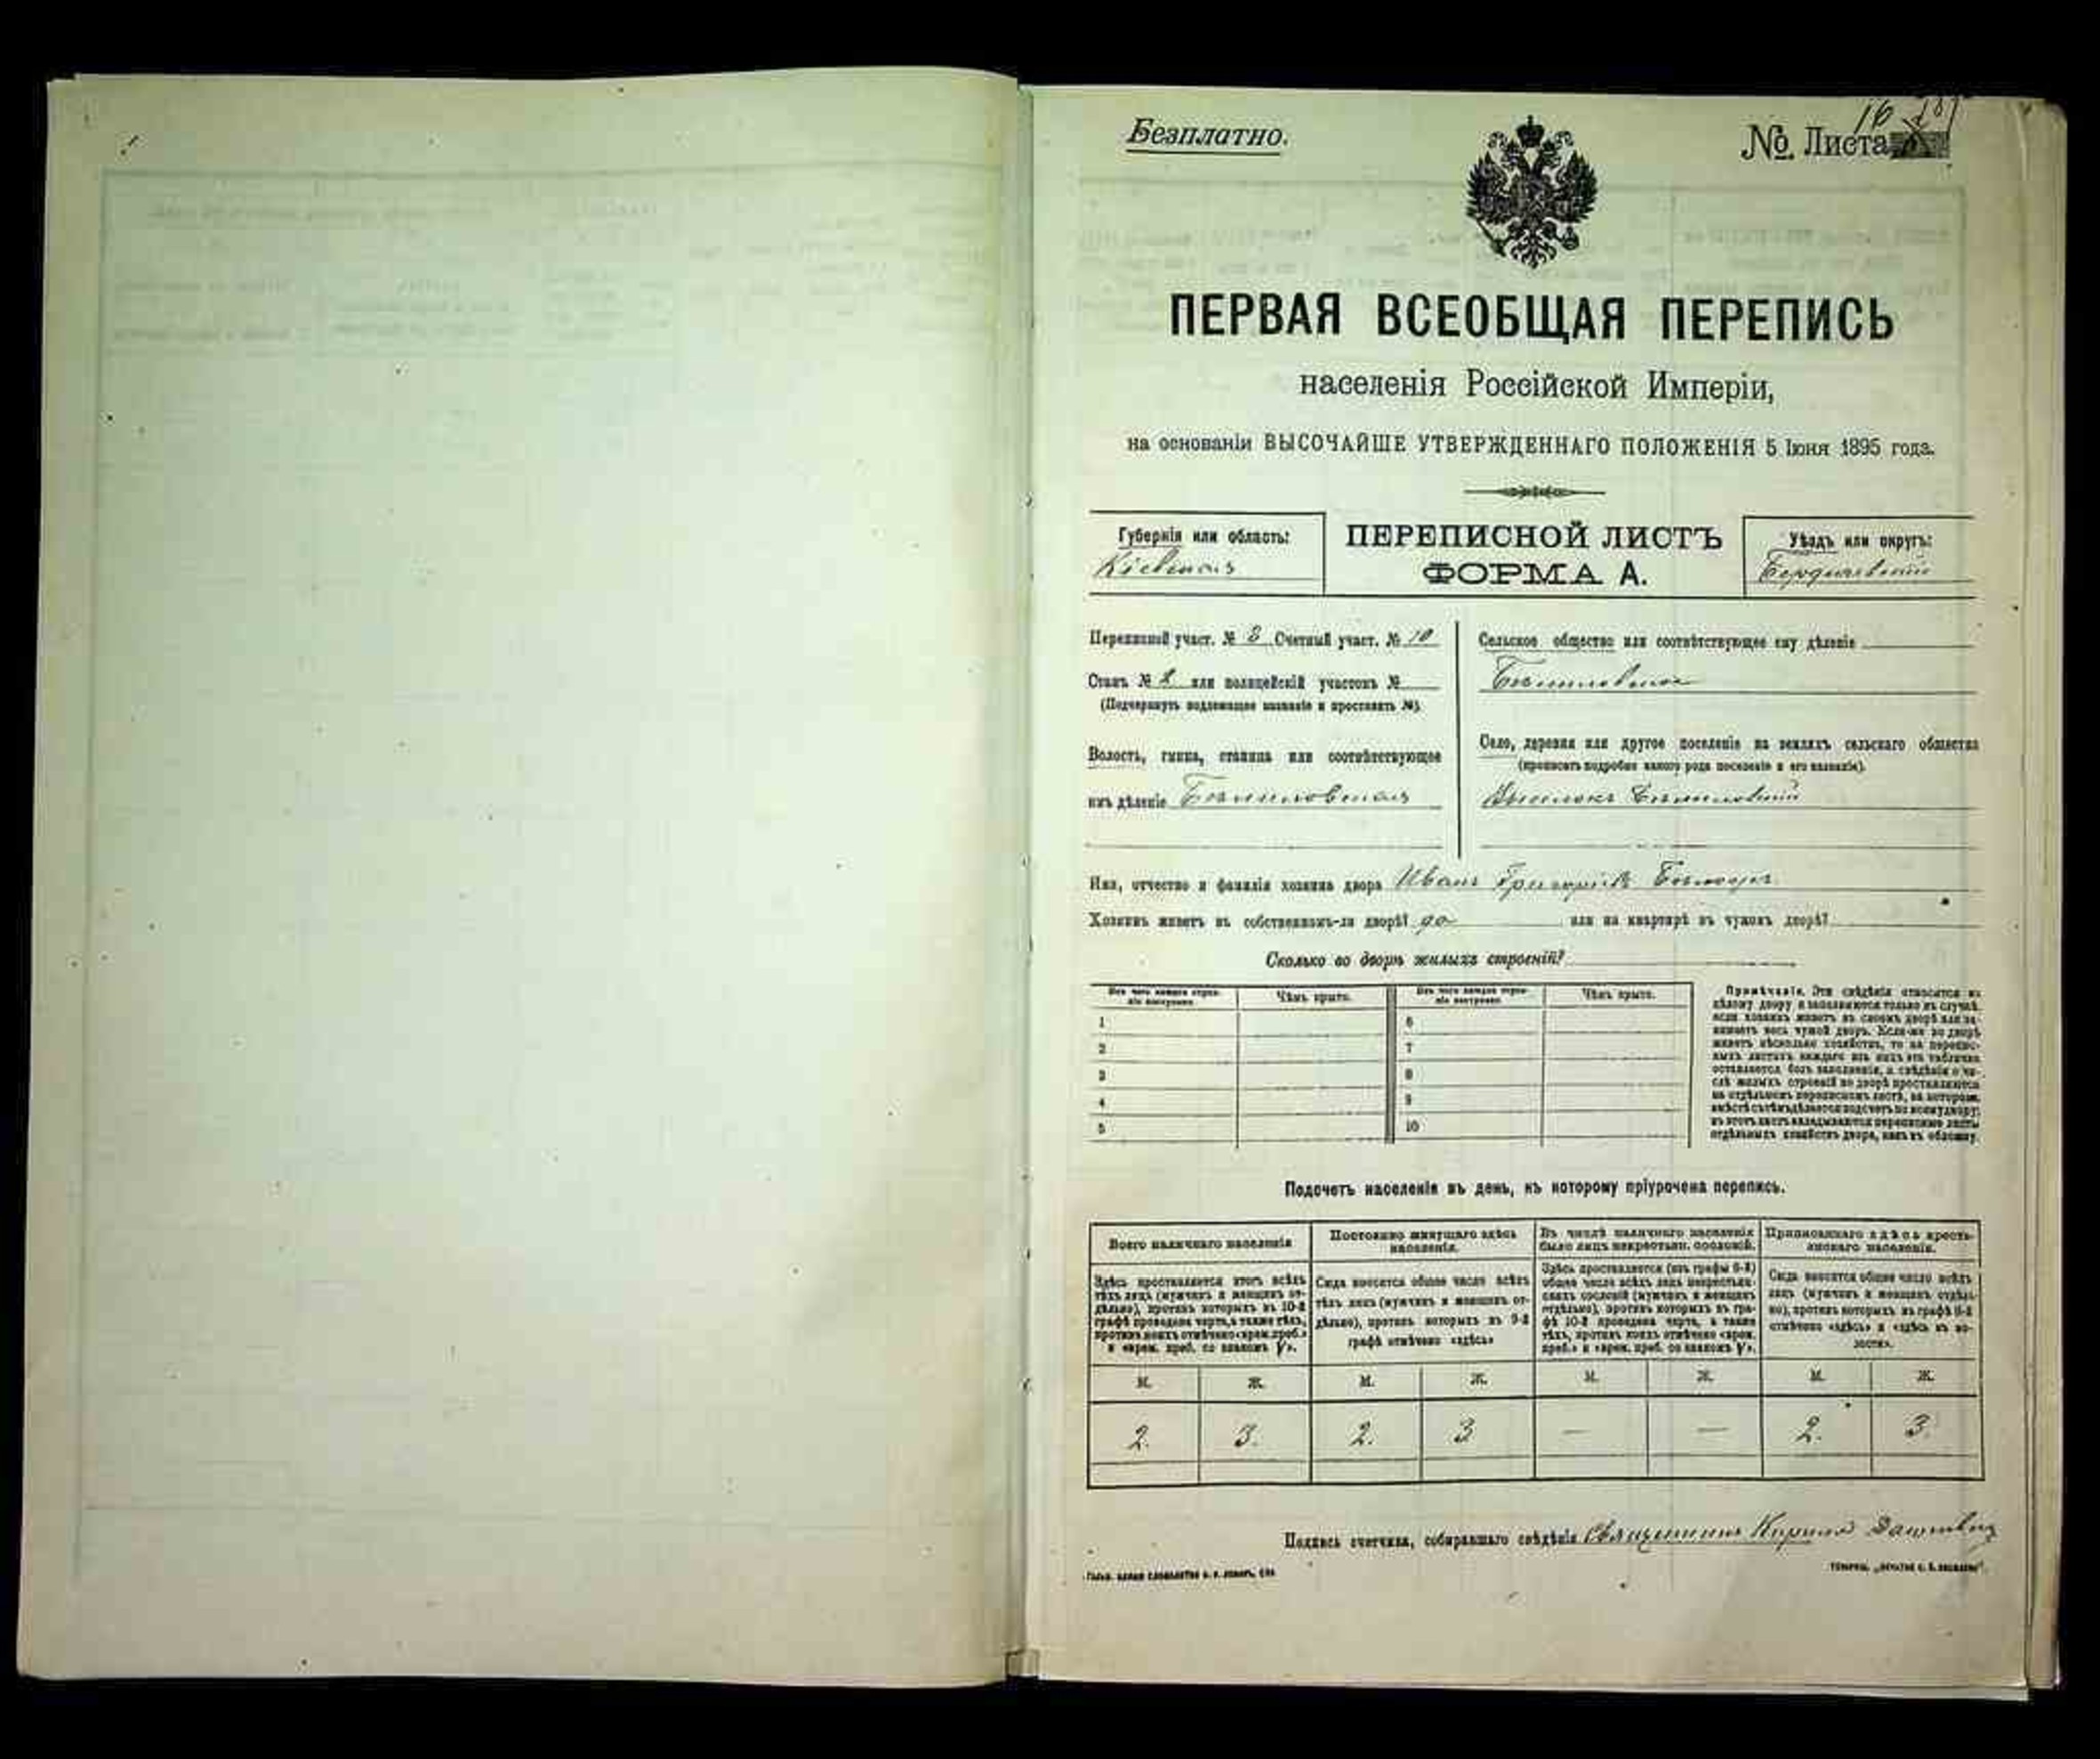 Безплатно.
16
№ Листа
ПЕРВАЯ ВСЕОБЩАЯ ПЕРЕПИСЬ
населенія Россійской Имперіи,
на основаніи ВЫСОЧАЙШЕ УТВЕРЖДЕННАГО ПОЛОЖЕНІЯ 5 Іюня 1895 года.
Губернія или область:
Кіевская
ПЕРЕПИСНОЙ ЛИСТЪ
ФОРМА А.
Уѣздъ или округъ:
Бердичевскій
Переписной участ. № 3 Счетный участ. № 10
Станъ № 2 или полицейскій участокъ №
(Подчеркнуть подлежащее названіе и проставить №).
Волость, гмина, станица или соотвѣтствующее
имъ дѣленіе
Сельское общество или соотвѣтствующее ему дѣленіе
Село, деревня или другое поселеніе на земляхъ сельскаго общества
(прописать подробно какого рода поселеніе и его названіе).
Имя, отчество и фамилія хозяина двора Иванъ Григорьевъ
Хозяинъ живетъ въ собственномъ-ли дворѣ? да или на квартирѣ въ чужомъ дворѣ?
Сколько во дворѣ жилыхъ строеній?
Изъ чего каждое строе-
ніе построено.
Чѣмъ крыто.
Изъ чего каждое строе-
ніе построено.
Чѣмъ крыто.
1 6
2 7
3 8
4 9
5 10
Примѣчаніе. Эти свѣдѣнія относятся къ
цѣлому двору и заполняются только въ случаѣ,
если хозяинъ живетъ въ своемъ дворѣ или за-
нимаетъ весь чужой дворъ. Если-же во дворѣ
живетъ нѣсколько хозяйствъ, то на перепис-
ныхъ листахъ каждаго изъ нихъ эта табличка
оставляется безъ заполненія, а свѣдѣнія о чи-
слѣ жилыхъ строеній во дворѣ проставляются
на отдѣльномъ переписномъ листѣ, на которомъ
вмѣстѣ съ тѣмъ дѣлается подсчетъ по всему двору;
въ этотъ листъ вкладываются переписные листы
отдѣльныхъ хозяйствъ двора, какъ въ обложку.
Подсчетъ населенія въ день, къ которому пріурочена перепись.
Всего наличнаго населенія
Здѣсь проставляется итогъ всѣхъ
тѣхъ лицъ (мужчинъ и женщинъ от-
дѣльно), противъ которыхъ въ 10-й
графѣ проведена черта, а также тѣхъ,
противъ коихъ отмѣчено «врем. преб.»
и «врем. преб. со знакомъ V».
Постоянно живущаго здѣсь
населенія.
Сюда вносится общее число всѣхъ
тѣхъ лицъ (мужчинъ и женщинъ от-
дѣльно), противъ которыхъ въ 9-й
графѣ отмѣчено «здѣсь»
Въ числѣ наличнаго населенія
было лицъ некрестьян. сословій.
Здѣсь проставляется (изъ графы 6-й)
общее число всѣхъ лицъ некрестьян-
скихъ сословій (мужчинъ и женщинъ
отдѣльно), противъ которыхъ въ гра-
фѣ 10-й проведена черта, а также
тѣхъ, противъ коихъ отмѣчено «врем.
преб.» и «врем. преб. со знакомъ V».
Приписаннаго здѣсь кресть-
янскаго населенія.
Сюда вносится общее число всѣхъ
лицъ (мужчинъ и женщинъ отдѣль-
но), противъ которыхъ въ графѣ 8-й
отмѣчено «здѣсь» и «здѣсь въ во-
лости».
М. Ж. М. Ж. М. Ж. М. Ж.
2. 3. 2. 3 — — 2. 3.
Подпись счетчика, собиравшаго свѣдѣнія Священникъ Кириллъ